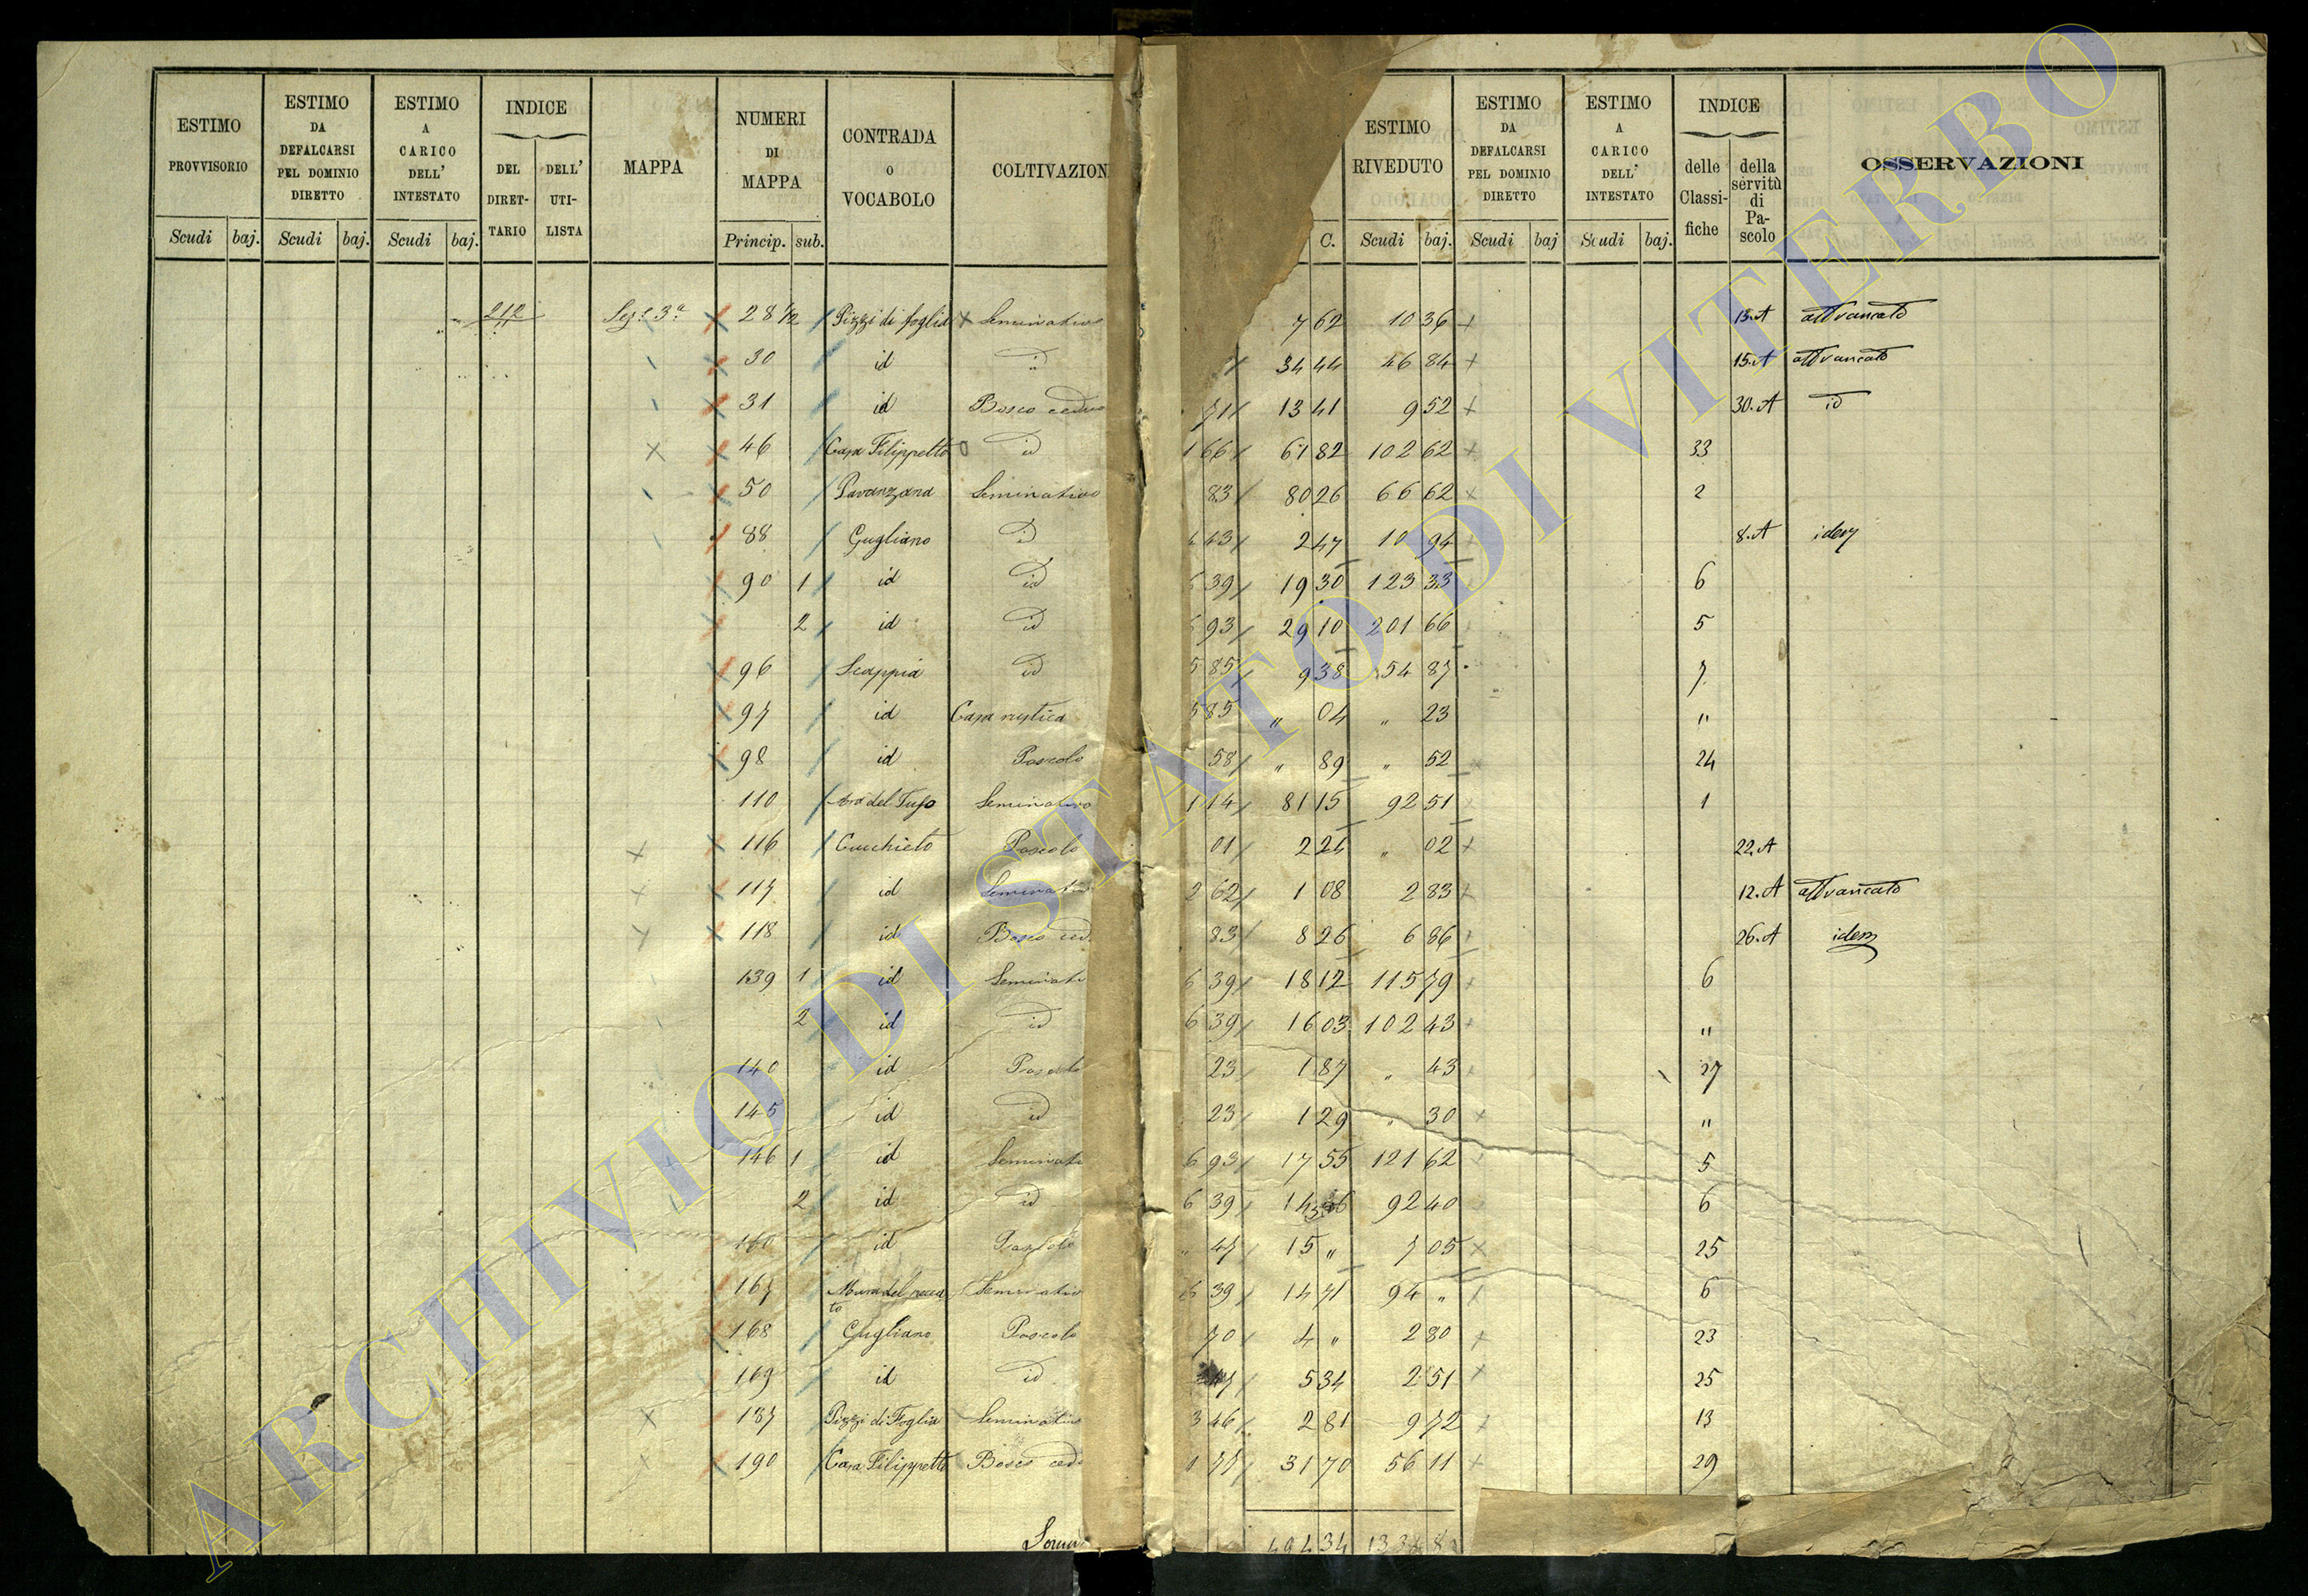 ESTIMO PROVVISORIO Scudi baj.
ESTIMO DA DEFALCARSI PEL DOMINIO DIRETTO Scudi baj.
ESTIMO A CARICO DELL' INTESTATO Scudi baj.
INDICE DEL DIRET-TARIO DELL' UTI-LISTA
MAPPA
NUMERI DI MAPPA Princip. sub.
CONTRADA O VOCABOLO
COLTIVAZION
C.
ESTIMO RIVEDUTO Scudi baj.
ESTIMO DA DEFALCARSI PEL DOMINIO DIRETTO Scudi baj
ESTIMO A CARICO DELL' INTESTATO Scudi baj.
INDICE delle Classi-fiche della servitù di Pa-scolo
OSSERVAZIONI
212 Sez.e 3a 28 1/2 Pizzi di foglia Seminativo 7 62 10 36 15.A affrancato
30 id id 34 44 46 84 15.A affrancato
31 id Bosco ceduo 71 13 41 9 52 30.A id
46 Casa Filippetto id 1 66 61 82 102 62 33
50 Pavanzana Seminativo 83 80 26 66 62 2
88 Gugliano id 43 2 47 10 94 8.A idem
90 1 id id 6 39 19 30 123 33 6
2 id id 6 93 29 10 201 66 5
96 Scappia id 5 85 9 38 54 87 7
97 id Casa rustica 5 85 " 04 " 23 "
98 id Pascolo 58 " 89 " 52 24
110 Ara del Tufo Seminativo 1 14 81 15 92 51 1
116 Cucchieto Pascolo 01 2 24 " 02 22.A
117 id Seminativo 2 62 1 08 2 83 12.A affrancato
118 id Bosco ced. 83 8 26 6 86 26.A idem
139 1 id Seminati 6 39 18 12 115 79 6
2 id id 6 39 16 03 102 43 "
140 id Pascolo 23 1 87 " 43 27
145 id id 23 1 29 " 30 "
146 1 id Seminati 6 93 17 55 121 62 5
2 id id 6 39 14 46 92 40 6
160 id Pascolo " 47 15 " 7 05 25
167 Mura del peccato Seminativo 6 39 14 71 94 " 6
168 Gugliano Pascolo 70 4 " 2 80 23
169 id id 47 5 34 2 51 25
187 Pizzi di Foglia Seminativo 3 46 2 81 9 72 13
190 Casa Filippetto Bosco ced 1 77 31 70 56 11 29
Somm 494 34 133
ARCHIVIO DI STATO DI VITERBO